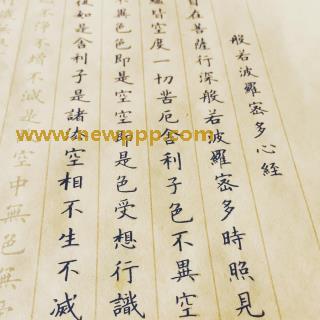 般若波羅蜜多心經
自在菩薩行深般若波羅蜜多時照見
蘊皆空度一切苦厄舍利子色不異空
不異色色即是空空即是色受想行識
復如是舍利子是諸法空相不生不滅
不淨不增不減是空中無色無
www.newppp.com